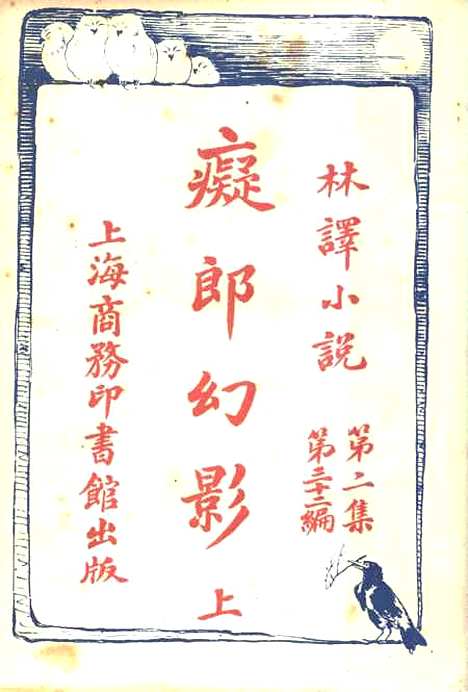 林譯小說
第二集
第三十二編
癡郎幻影 上
上海商務印書館出版